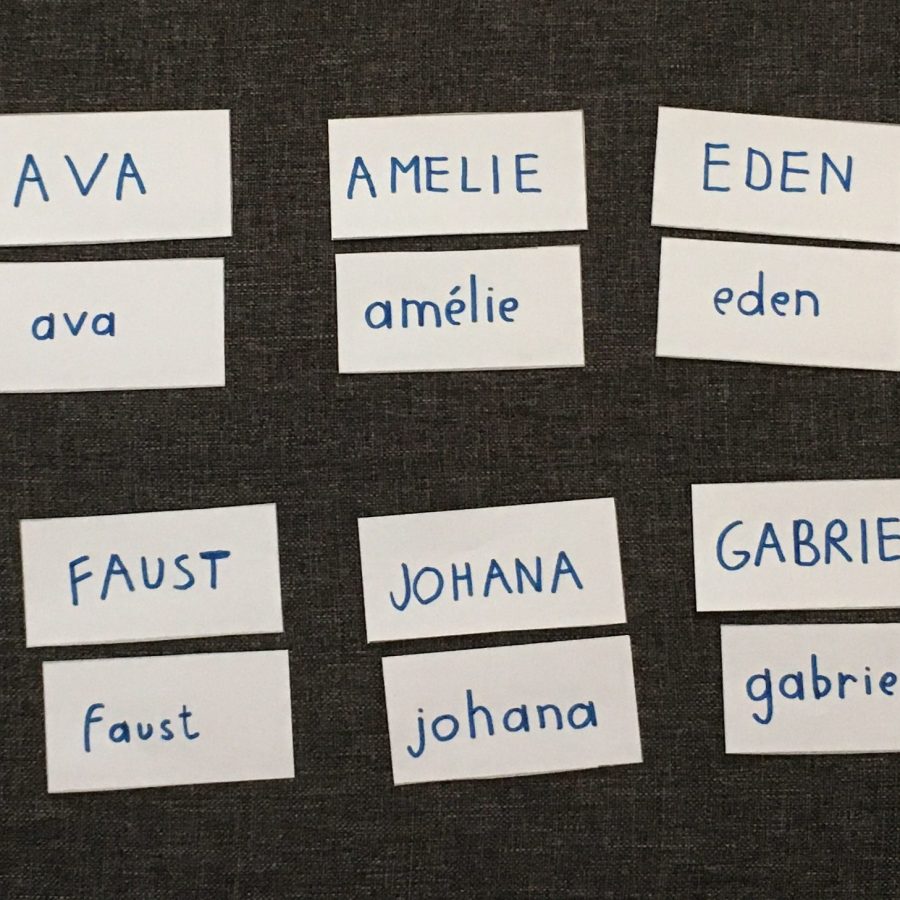 AVA
AMELIE
EDEN
ava
amélie
eden
FAUST
JOHANA
GABRIE
faust
johana
gabrie